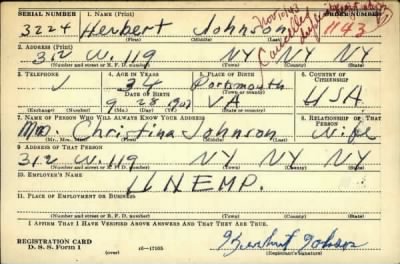 SERIAL NUMBER 1. NAME (Print) ORDER NUMBER
3224 Herbert Johnson 1143
(First) (Middle) (Last)
2. ADDRESS (Print)
312 W. 119 NY NY NY
(Number and street or R. F. D. number) (Town) (County) (State)
3. TELEPHONE 4. AGE IN YEARS 5. PLACE OF BIRTH 6. COUNTRY OF CITIZENSHIP
34 Portsmouth
DATE OF BIRTH (Town or county)
9 28 VA USA
(Exchange) (Number) (Mo.) (Day) (Yr.) (State or country)
7. NAME OF PERSON WHO WILL ALWAYS KNOW YOUR ADDRESS 8. RELATIONSHIP OF THAT PERSON
Mrs. Christina Johnson Wife
(Mr., Mrs., Miss) (First) (Middle) (Last)
9. ADDRESS OF THAT PERSON
312 W. 119 NY NY NY
(Number and street or R. F. D. number) (Town) (County) (State)
10. EMPLOYER'S NAME
UNEMP.
11. PLACE OF EMPLOYMENT OR BUSINESS
(Number and street or R. F. D. number) (Town) (County) (State)
I AFFIRM THAT I HAVE VERIFIED ABOVE ANSWERS AND THAT THEY ARE TRUE.
REGISTRATION CARD
D. S. S. Form 1 (over) 16-17105 (Registrant's signature)
Herbert Johnson